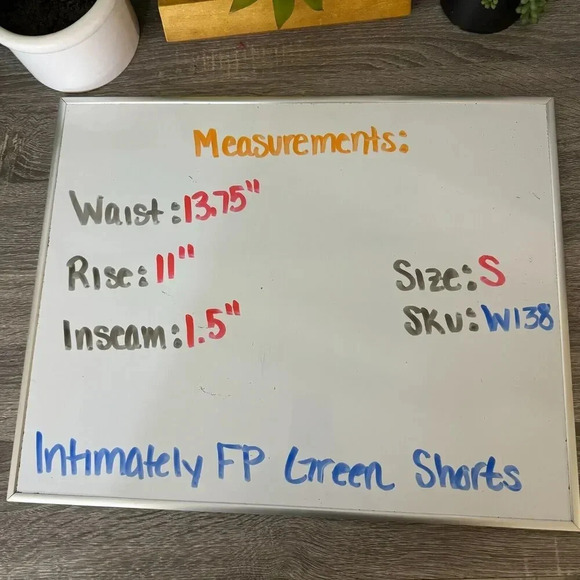 Measurements:
Waist: 13.75"
Rise: 11"
Size: S
Inseam: 1.5"
SKU: W138
Intimately FP Green Shorts